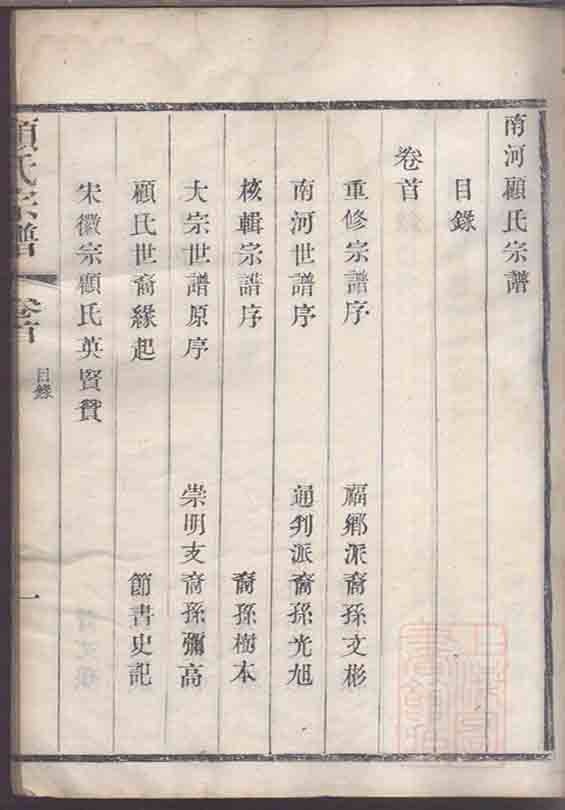 南河顧氏宗譜
目錄
卷首
重修宗譜序 福鄉派裔孫文彬
南河世譜序 通判派裔孫光旭
核輯宗譜序 裔孫樹本
大宗世譜原序 崇明支裔孫彌高
顧氏世裔緣起 節書史記
宋徽宗顧氏英賢贊
顧氏宗譜
卷首
目錄
一